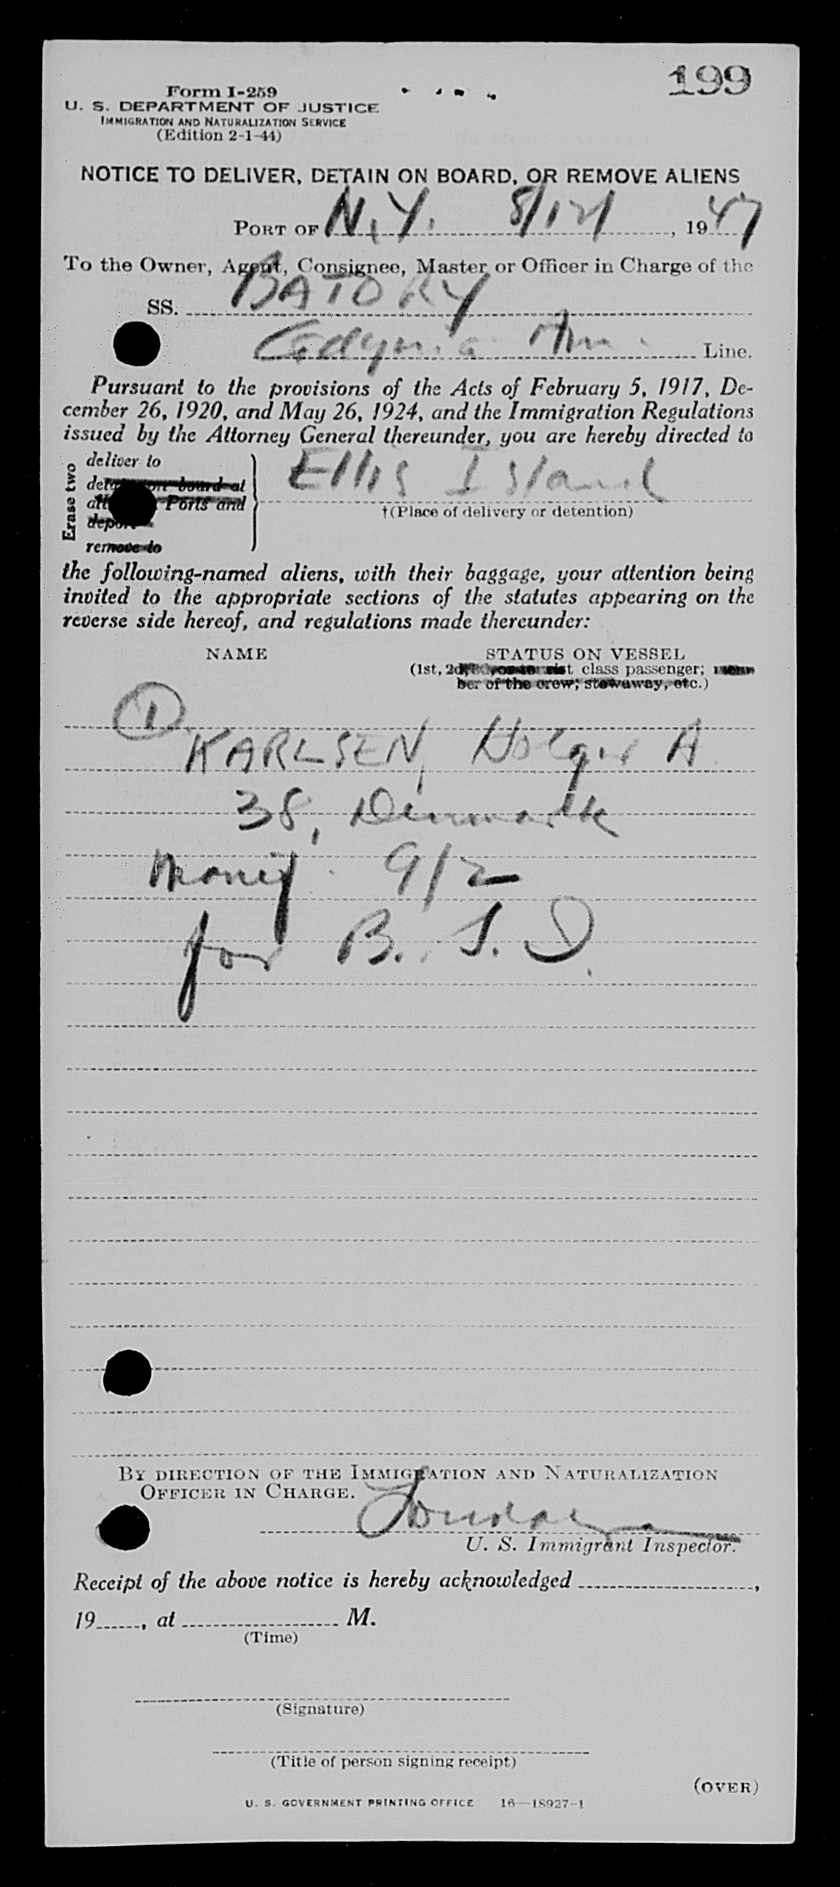 199
Form I-259
U. S. DEPARTMENT OF JUSTICE
IMMIGRATION AND NATURALIZATION SERVICE
(Edition 2-1-44)
NOTICE TO DELIVER, DETAIN ON BOARD, OR REMOVE ALIENS
PORT OF N.Y. 8/12/, 1947
To the Owner, Agent, Consignee, Master or Officer in Charge of the
SS. BATORY
Gdynia Am. Line.
Pursuant to the provisions of the Acts of February 5, 1917, De-
cember 26, 1920, and May 26, 1924, and the Immigration Regulations
issued by the Attorney General thereunder, you are hereby directed to
Erase two
deliver to
on board at
Ports and
remove to
Ellis Island
†(Place of delivery or detention)
the following-named aliens, with their baggage, your attention being
invited to the appropriate sections of the statutes appearing on the
reverse side hereof, and regulations made thereunder:
NAME STATUS ON VESSEL
(1st, 2d, class passenger;
ber of the crew; stowaway, etc.)
1
KARLSEN, Holger A
38, Denmark
money 9/2
for B.S.I.
BY DIRECTION OF THE IMMIGRATION AND NATURALIZATION
OFFICER IN CHARGE.
U. S. Immigrant Inspector.
Receipt of the above notice is hereby acknowledged ,
19 , at M.
(Time)
(Signature)
(Title of person signing receipt)
(OVER)
U. S. GOVERNMENT PRINTING OFFICE 16—18927-1